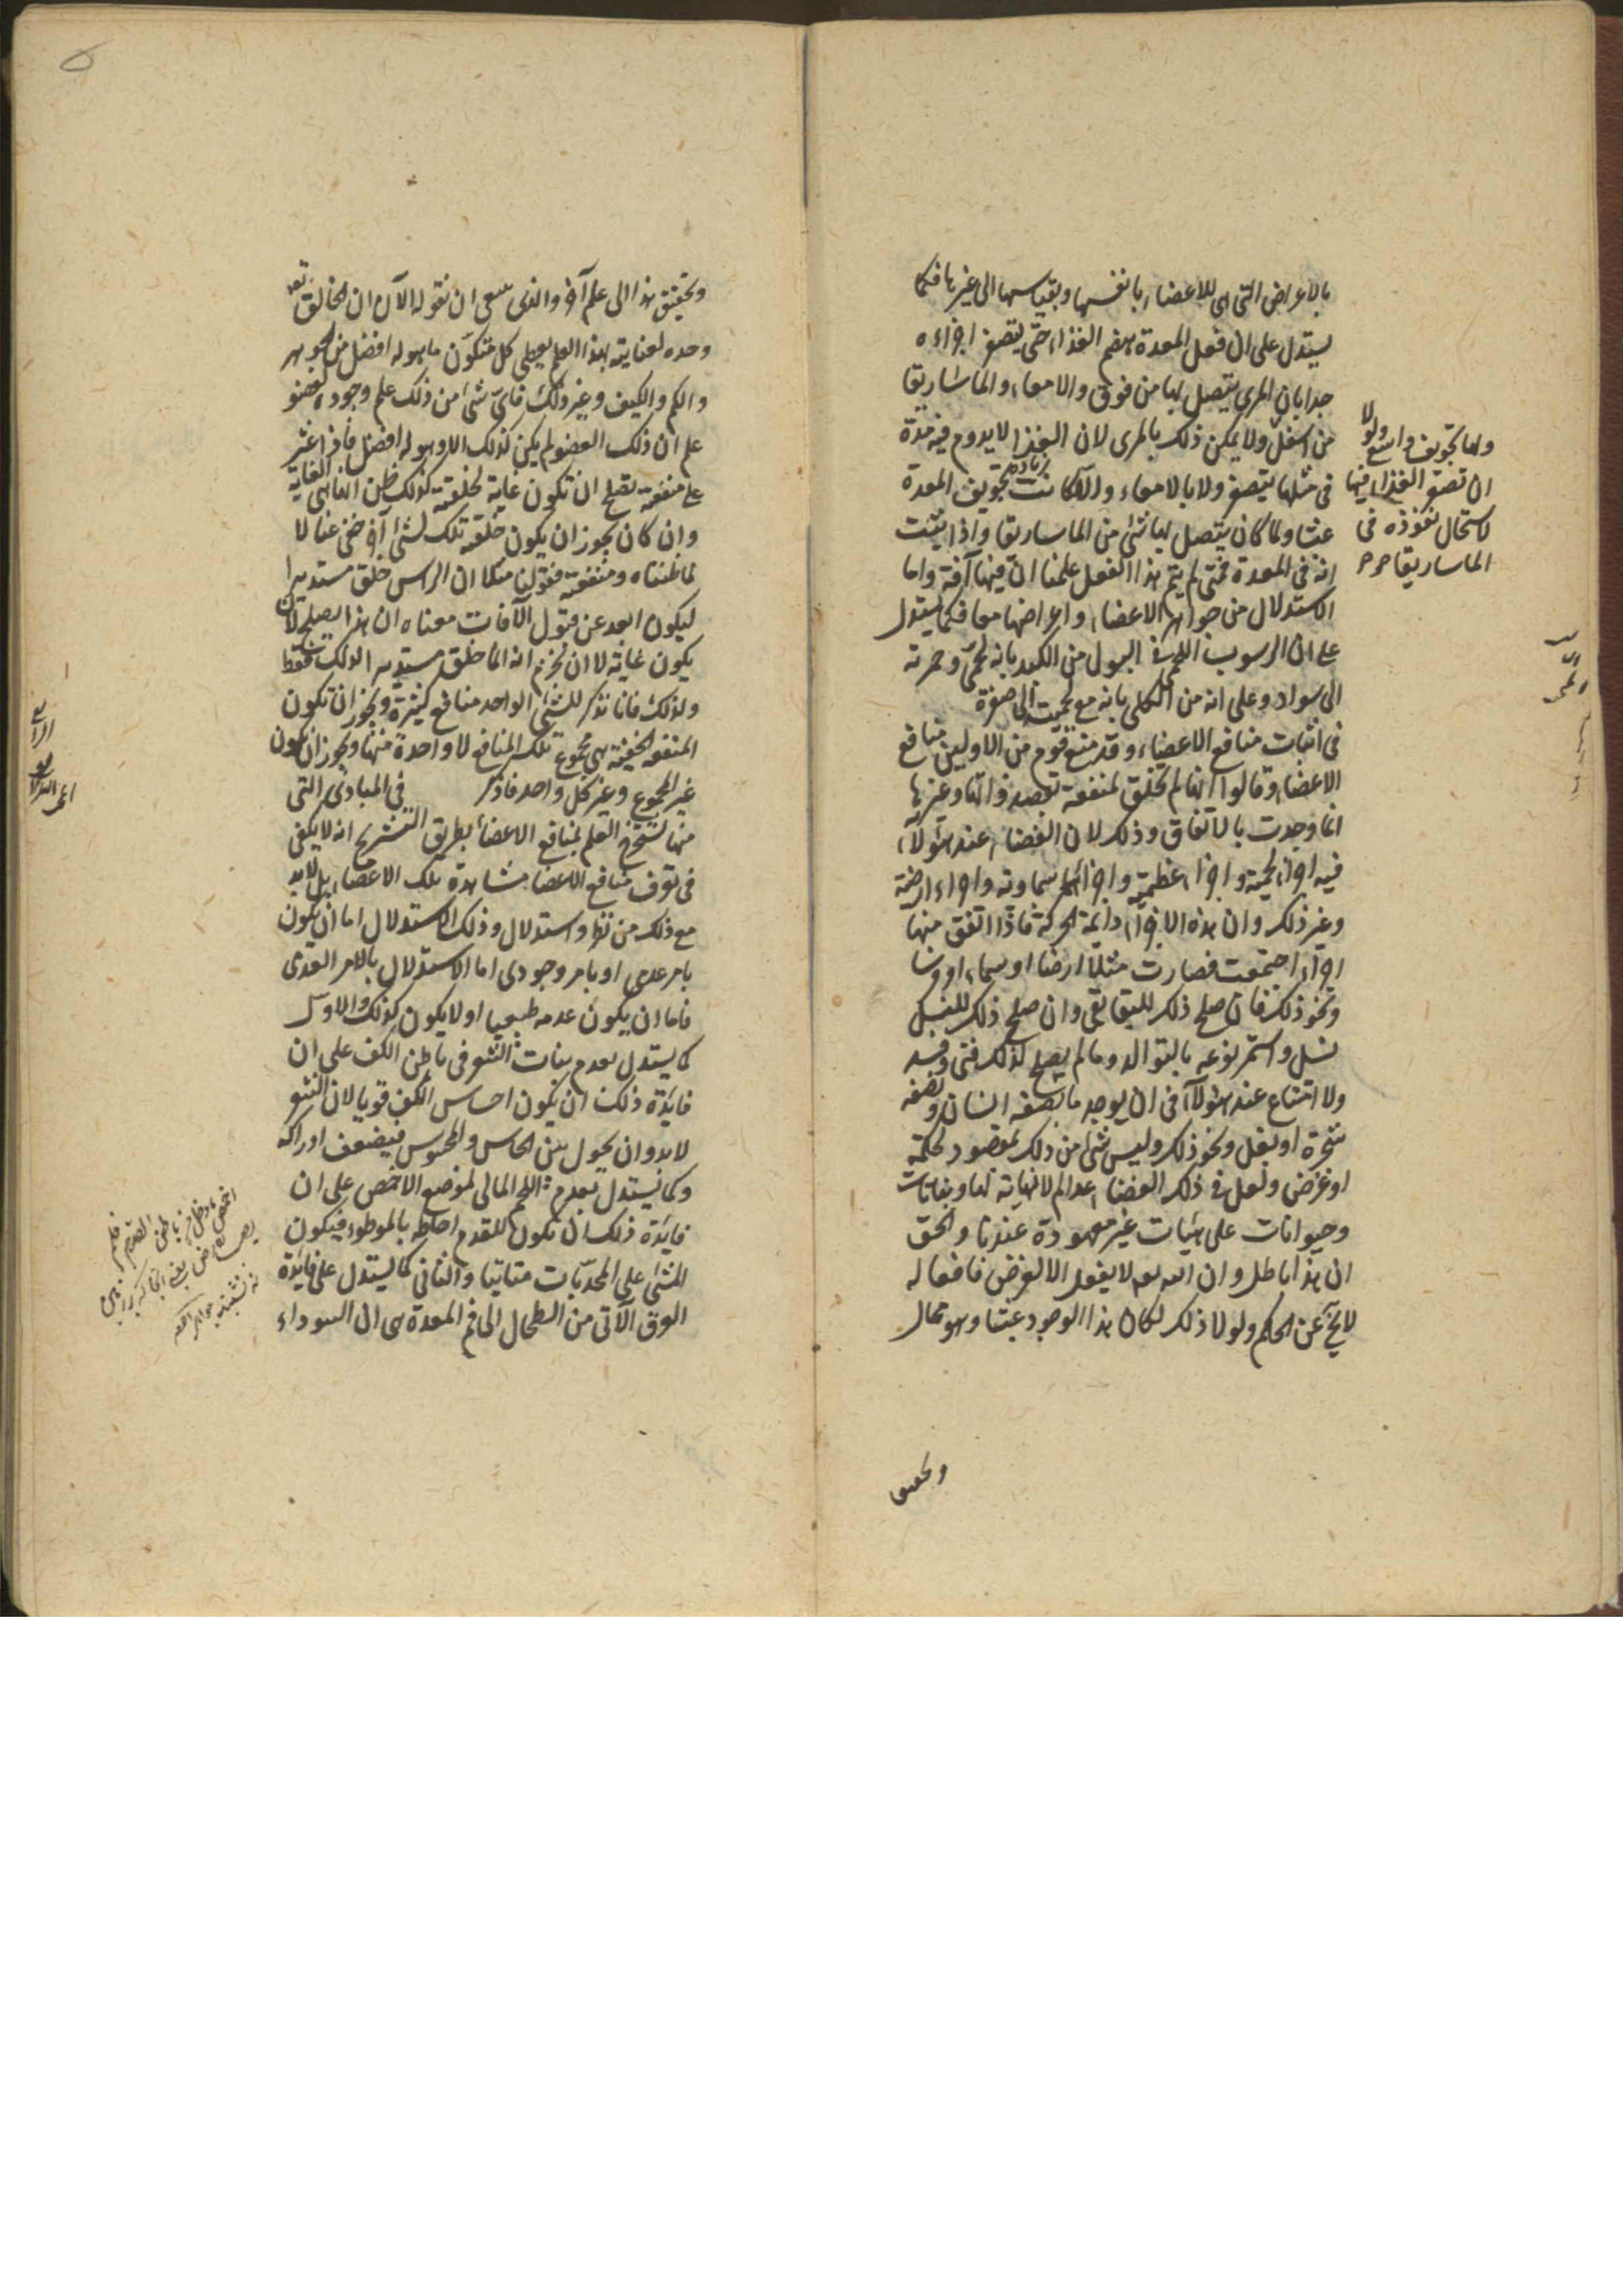 بالاعراض التي هي للاعضاء بانفسها وبقياسها الى غيرها فكما
يستدل على ان فعل المعدة هضم الغذاء حتى يتصغر اجزاءه
جدا بان المرى يتصل بها من فوق والامعاء والماساريقا
من اسفل ولا يمكن ذلك بالمرى لان الغذا لا يدوم فيه مدة
في مثلها يتصغر ولا بالامعاء والا كانت زيادة تجويف المعدة
عبثا ولما كان يتصل بها شئ من الماساريقا واذا ثبت
انه في المعدة فمتى لم يتم هذا الفعل علمنا ان فيها آفة واما
الاستدلال من جواهر الاعضاء واعراضها معا فكما يستدل
على ان الرسوب اللحمى في البول من الكبد بانه لحمى وحمرته
الى سواد وعلى انه من الكلى بانه مع لحميته الى صفرة
في اثبات منافع الاعضاء وقد منع قوم من الاولين منافع
الاعضاء وقالوا انها لم تخلق لمنفعة تقصد ذواتها وغيرها
انما وجدت بالاتفاق وذلك لان الفضاء عند هؤلاء
فيه اجزاء لحمية واجزاء عظمية واجزاء سماوية واجزاء ارضية
وغير ذلك وان هذه الاجزاء دائمة الحركة فاذا اتفق منها
اجزاء اجتمعت فصارت مثلا ارضا او سماء او فرسا
ونحو ذلك فان صلح ذلك للبقا بقى وان صلح ذلك للنسل
نسل واستمر نوعه بالتوالد وما لم يصلح لذلك فنى وفسد
ولا امتناع عند هؤلاء في ان يوجد ما نصفه انسان ونصفه
شجرة او بغل ونحو ذلك وليس شئ من ذلك بمقصود لحكمة
او غرض ولعل في ذلك الفضاء عوالم لا نهاية لها ونباتات
وحيوانات على هيات غير معهودة عندنا والحق
ان هذا باطل وان الله تعه لا يفعل الا لغرض فافعاله
لا يخ عن الحكم ولولا ذلك لكان هذا الوجود عبثا وهو محال
وتحقيق
ولها تجويف واسع ولولا
ان تصغر الغذاء فيها
لاستحال نفوذه في
الماساريقا
وتحقيق هذا الى علم آخر والذى ينبغى ان نقوله الآن ان الخالق تعه
وحده لعنايته بهذا العالم يعطى كل متكون ما هو له افضل من الجوهر
والكم والكيف وغير ذلك فاى شئ من ذلك علم وجوده لعضو
علم ان ذلك العضو لم يكن كذلك الا وهو له افضل فاذا عثر
على منفعة تصلح ان تكون غاية لخلقته كذلك ظن انها هي الغاية
وان كان يجوز ان يكون خلقه تلك لشئ آخر خفى عنا لا
لما ظنناه ومنفعة فقولنا مثلا ان الراس خلق مستديرا
ليكون ابعد عن قبول الآفات معناه ان هذا يصلح لان
يكون غاية لا ان نجزم انه انما خلق مستديرا لذلك فقط
ولذلك فانا نذكر للشئ الواحد منافع كثيرة ويجوز ان تكون
المنفعة الحقيقية هي مجموع تلك المنافع لا واحدة منها ويجوز ان تكون
غير المجموع وغير كل واحد فاذكر في المبادى التي
منها يستخرج العلم بمنافع الاعضاء بطريق التشريح انه لا يكفى
في تعرف منافع الاعضا مشاهدة تلك الاعضاء بل لا بد
مع ذلك من نظر واستدلال وذلك الاستدلال اما ان يكون
بامر عدمى او بامر وجودى اما الاستدلال بالامر العدمى
فاما ان يكون عدمه طبيعيا او لا يكون كذلك والاول
كما يستدل بعدم نبات الشعر في باطن الكف على ان
فايدة ذلك ان يكون احساس الكف قويا لان الشعر
لا بد وان يحول بين الحاس والمحسوس فيضعف ادراكه
وكما يستدل بعدم اللحم المالى لموضع الاخمص على ان
فايدة ذلك ان تكون للقدم احاطة بالموطوء فيكون
المشى على المحدبات متاتيا والثانى كما يستدل على فايدة
العرق الآتى من الطحال الى فم المعدة هي ان السوداء
اخمص ما دخل من باطن القدم فلم
يصب الارض